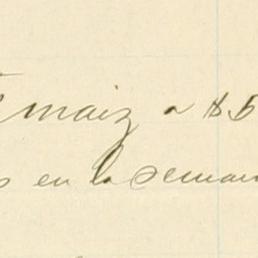 maiz a $5
s en la seman